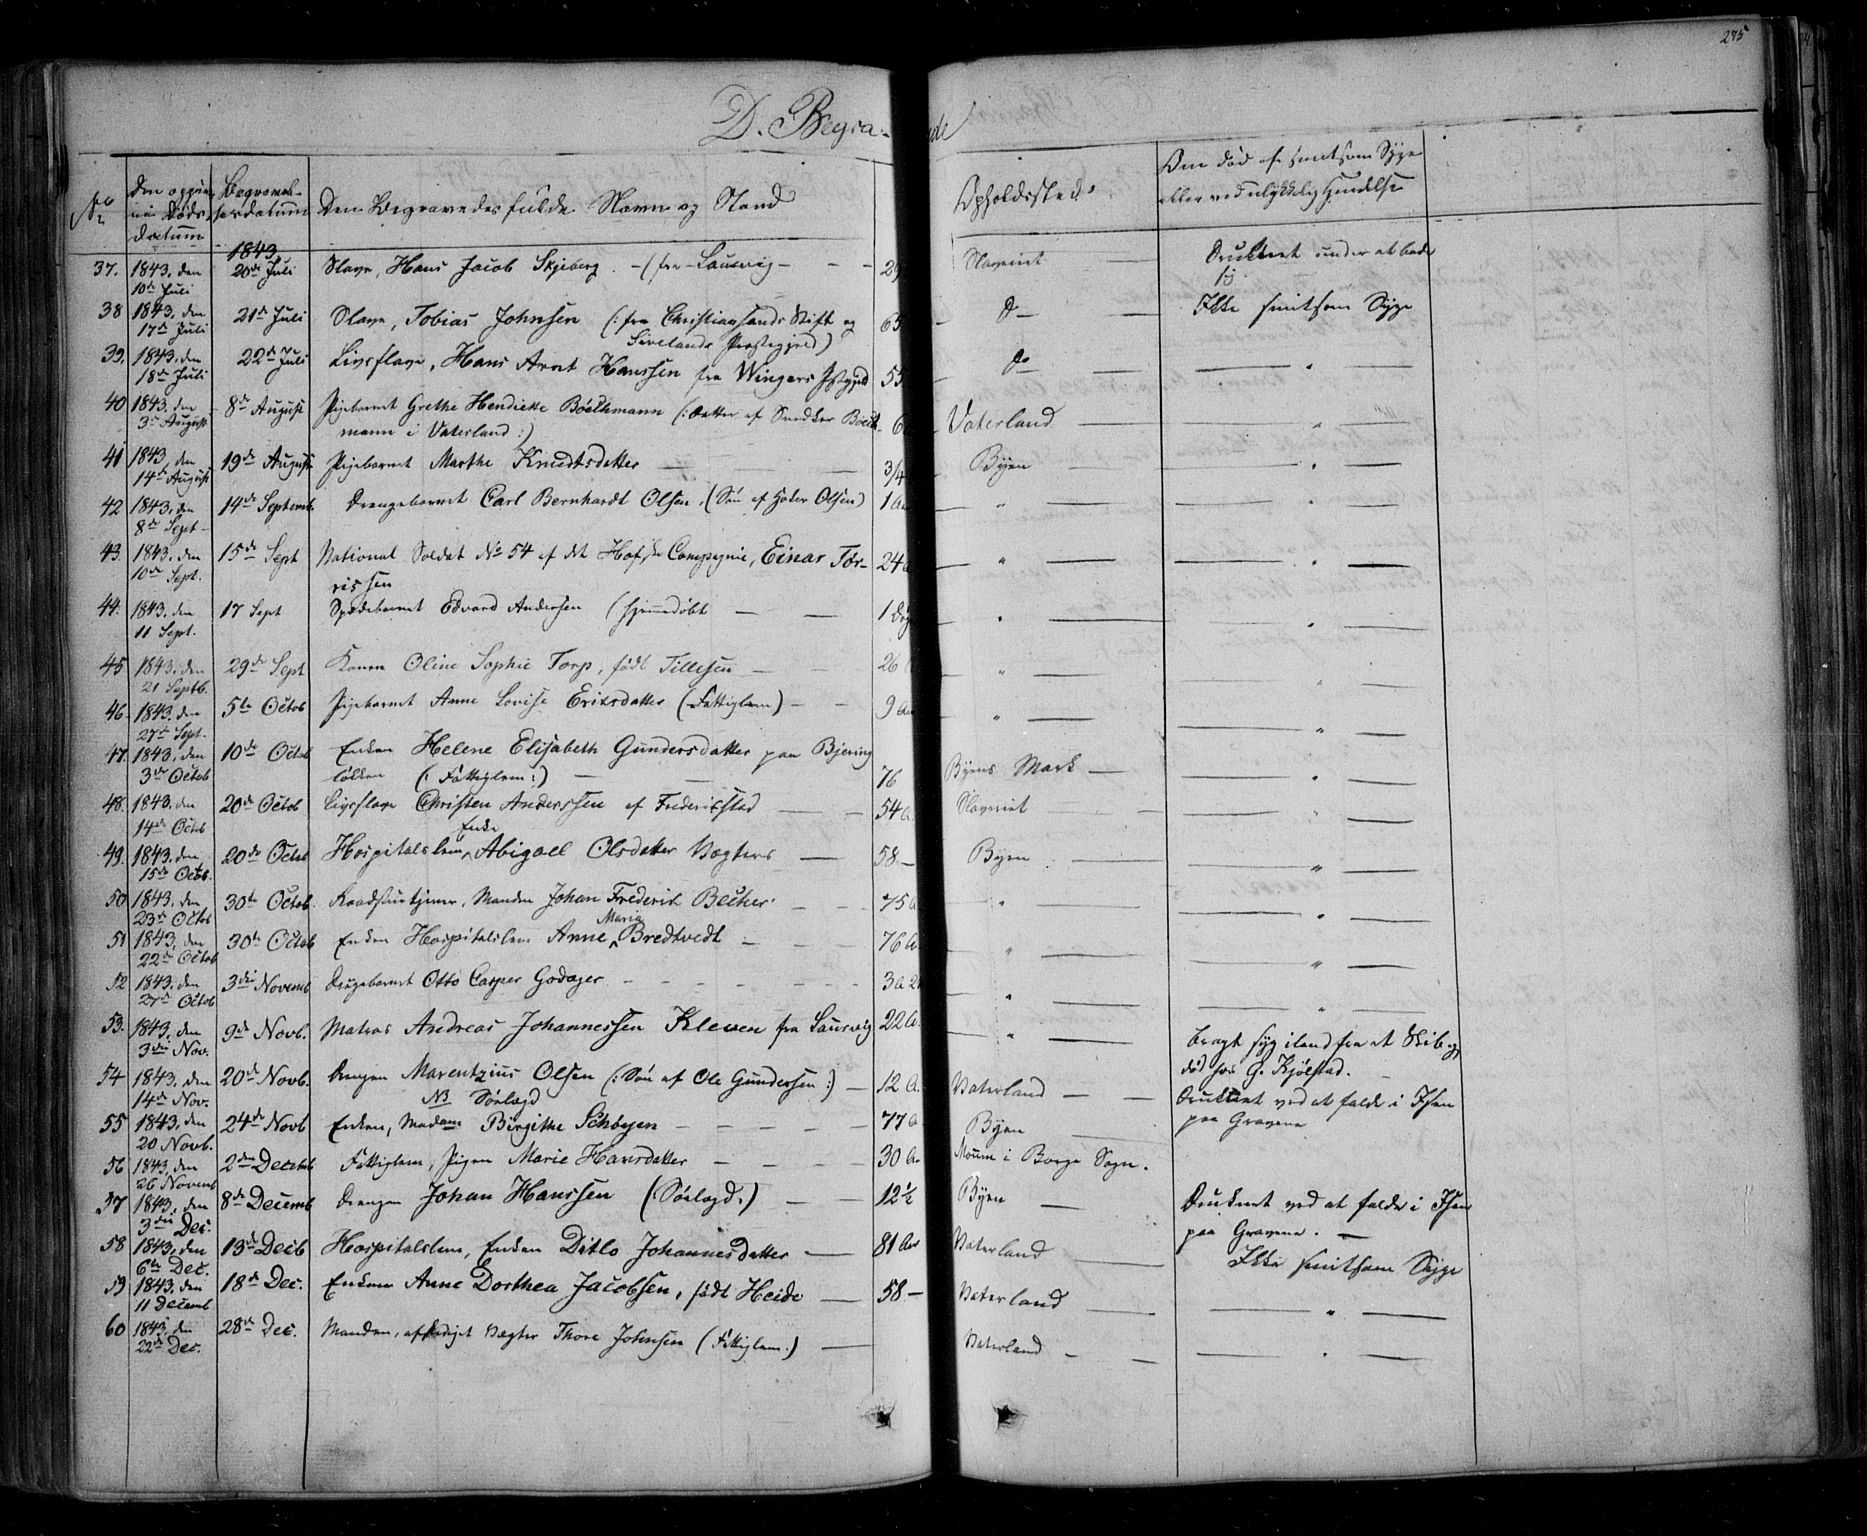 275
D. Begravede
No
Den opgivne Døds datum
Begravelses datum
Den Begravedes fulde Navn og Stand
Opholdssted
Om død af smitsom Syge eller ved ulykkelig Hændelse
1843
37. 1843, den 10de Juli 20de Juli Slave, Hans Jacob Skjeberg - (fra Laurvig - - - 29 Slaveriet Druknet under at bade sig
38 1843. den 17de Juli 21de Juli Slave, Tobias Johnsen (: fra Christiansands Stift og 65 Do Ikke smitsom Syge
Sirelands Præstegjeld)
39. 1843. den 18de Juli 22de Juli Livsslave, Hans Arnt Hanssen fra Wingers Præstegjeld 55 Do "
40 1843. den 3de August 8de August Pigebarnet Grethe Hendrikke Böethmann (: Datter af Snedker Böeth- 6 Vaterland "
mann i Vaterland :)
41 1843 den 14de August 19de August Pigebarnet Marthe Knudtsdatter 3/4 Byen "
42 1843. den 8de Sept 14de Septemb. Drengebarnet Carl Bernhardt Olsen. (Søn af Olsen) 1 Aar " "
43. 1843. den 10de Sept. 15de Sept National Soldat No 54 af det Compagnie, Einar Tor- 24 " "
rissen
44. 1843. den 11 Sept. 17 Sept Spædebarnet Edvard Andersen (hjemmedøbt 1 " "
45 1843. den 21 Septb. 29de Sept Konen Oline Sophie Torp, født Tillesen 26 " "
46. 1843. den 27de Sept. 5te Octob Pigebarnet Anne Lovise Eriksdatter (Fattiglem) 9 " "
47. 1843. den 3de Octob 10de Octob Enken Helene Elisabeth Gundersdatter paa Bjering
løkken (: Fattiglem :) 76 Byens Mark "
48. 1843. den 14de Octob 20de Octob Livsslave Christen Anderssen af Frederikstad 54 A. Slaveriet "
49. 1843. den 15de Octb. 20de Octob Hospitalslem, Enke Abigael Olsdatter Vægters 58 - Byen "
50 1843. den 23de Octob 30te Octob. Raadstuetjener, Manden Johan Frederik Becher 75 A " "
51 1843, den 22de Octob 30te Octob Enken Hospitalslem Anne Maria Bredtvedt 76 A. " "
52 1843. den 27de Octob 3die Novemb Drengebarnet Otto Casper Godager 3 a 2 " "
53. 1843, den 3die Nov. 9de Novb. Matros Andreas Johannessen Kleven fra Laurvig 22 A. " bragt syg iland fra et Skib og
død hos G. Kjølstad.
54 1843. den 14de Nov. 20de Novb. Drengen Marentzius Olsen (: Søn af Ole Gundersen :) 12 A. Vaterland Druknet ved at falde i Isen
NB Sørlagd paa Gravene
55 1843. den 20 Novb. 24de Novb Enken, Madam Birgithe Schøyen 77 A Byen
56 1843. den 26 Novemb 2den Decemb Fattiglem, Pigen Marie Hansdatter 30 A. Moum i Borge Sogn.
57 1843. den 3die Dec. 8de Decemb Drengen Johan Hanssen (: Sørlagd.) 12½ Byen Druknet ved at falde i Isen
paa Gravene.
58 1843, den 6te Dec. 13de Decb Hospitalslem, Enken Ditlo Johannesdatter 81 Aar Vaterland Ikke smitsom Syge
59 1843. den 11 Decemb 18de Dec. Enken Anne Dorthea Jacobsen, født Heide 58 - Vaterland "
60 1843, den 22de Dec. 28de Dec. Manden, afskediget Vægter Thore Johnsen (Fattiglem.) Vaterland "